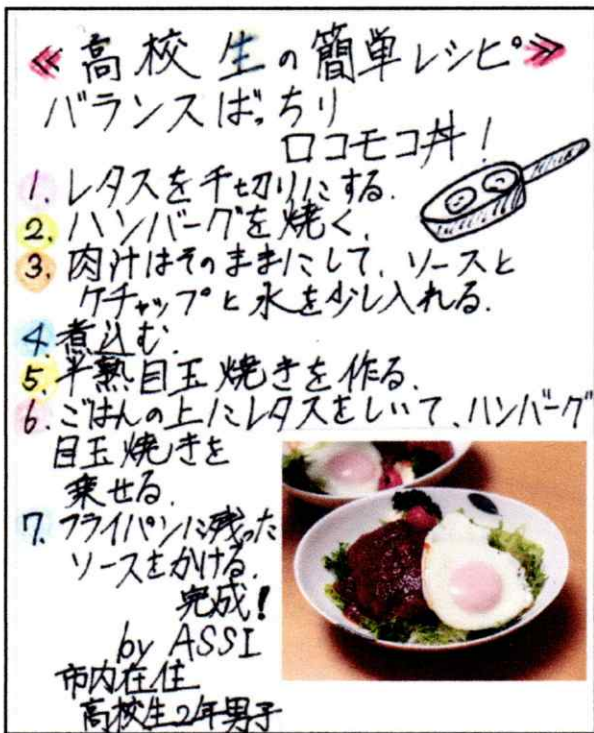 ≪高校生の簡単レシピ≫
バランスばっちり
ロコモコ丼！
1. レタスを千切りにする.
2. ハンバーグを焼く.
3. 肉汁はそのままにして、ソースと
ケチャップと水を少し入れる.
4. 煮込む.
5. 半熟目玉焼きを作る.
6. ごはんの上にレタスをしいて、ハンバーグ
目玉焼きを
乗せる.
7. フライパンに残った
ソースをかける.
完成！
by ASSI
市内在住
高校生2年男子